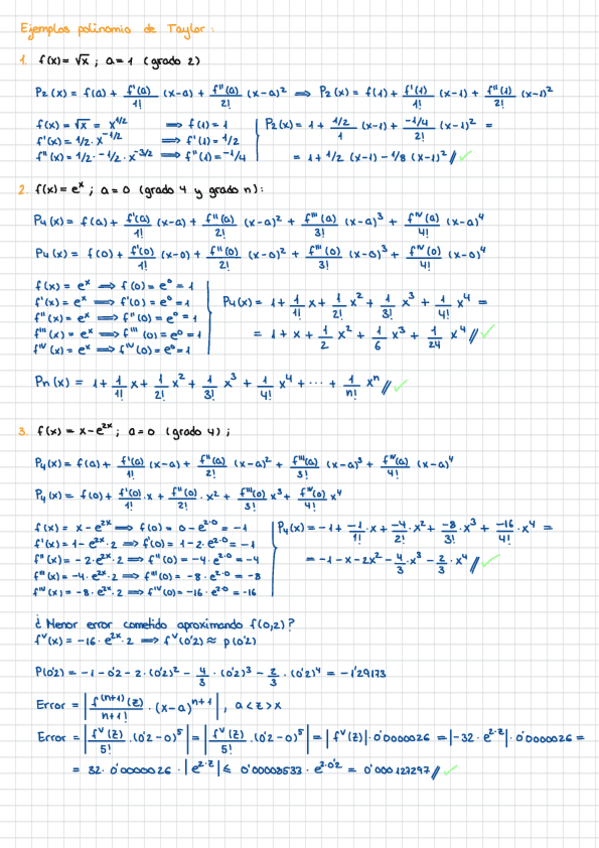 Ejemplos polinomio de Taylor:
1. f(x) = √x ; a = 1 (grado 2)
P₂(x) = f(a) + f'(a)/1! (x-a) + f''(a)/2! (x-a)² ⟹ P₂(x) = f(1) + f'(1)/1! (x-1) + f''(1)/2! (x-1)²
f(x) = √x = x^1/2 ⟹ f(1) = 1
f'(x) = 1/2 · x^-1/2 ⟹ f'(1) = 1/2
f''(x) = 1/2 · -1/2 · x^-3/2 ⟹ f''(1) = -1/4
P₂(x) = 1 + 1/2/1 (x-1) + -1/4/2! (x-1)² =
= 1 + 1/2 (x-1) - 1/8 (x-1)² // ✓
2. f(x) = eˣ ; a = 0 (grado 4 y grado n):
P₄(x) = f(a) + f'(a)/1! (x-a) + f''(a)/2! (x-a)² + f'''(a)/3! (x-a)³ + f^IV(a)/4! (x-a)⁴
P₄(x) = f(0) + f'(0)/1! (x-0) + f''(0)/2! (x-0)² + f'''(0)/3! (x-0)³ + f^IV(0)/4! (x-0)⁴
f(x) = eˣ ⟹ f(0) = e⁰ = 1
f'(x) = eˣ ⟹ f'(0) = e⁰ = 1
f''(x) = eˣ ⟹ f''(0) = e⁰ = 1
f'''(x) = eˣ ⟹ f'''(0) = e⁰ = 1
f^IV(x) = eˣ ⟹ f^IV(0) = e⁰ = 1
P₄(x) = 1 + 1/1! x + 1/2! x² + 1/3! x³ + 1/4! x⁴ =
= 1 + x + 1/2 x² + 1/6 x³ + 1/24 x⁴ // ✓
Pn(x) = 1 + 1/1! x + 1/2! x² + 1/3! x³ + 1/4! x⁴ + ··· + 1/n! xⁿ // ✓
3. f(x) = x - e^2x ; a = 0 (grado 4) ;
P₄(x) = f(a) + f'(a)/1! (x-a) + f''(a)/2! (x-a)² + f'''(a)/3! (x-a)³ + f^IV(a)/4! (x-a)⁴
P₄(x) = f(0) + f'(0)/1! · x + f''(0)/2! · x² + f'''(0)/3! x³ + f^IV(0)/4! x⁴
f(x) = x - e^2x ⟹ f(0) = 0 - e^2·0 = -1
f'(x) = 1 - e^2x · 2 ⟹ f'(0) = 1 - 2 · e^2·0 = -1
f''(x) = -2 · e^2x · 2 ⟹ f''(0) = -4 · e^2·0 = -4
f'''(x) = -4 · e^2x · 2 ⟹ f'''(0) = -8 · e^2·0 = -8
f^IV(x) = -8 · e^2x · 2 ⟹ f^IV(0) = -16 · e^2·0 = -16
P₄(x) = -1 + -1/1! · x + -4/2! · x² + -8/3! · x³ + -16/4! · x⁴ =
= -1 - x - 2x² - 4/3 · x³ - 2/3 · x⁴ // ✓
¿ Menor error cometido aproximando f(0,2) ?
f^V(x) = -16 · e^2x · 2 ⟹ f^V(0'2) ≈ p(0'2)
P(0'2) = -1 - 0'2 - 2 · (0'2)² - 4/3 · (0'2)³ - 2/3 · (0'2)⁴ = -1'29173
Error = | f^(n+1)(z)/n+1! · (x-a)^n+1 | , a < z > x
Error = | f^V(z)/5! · (0'2-0)⁵ | = | f^V(z)/5! · (0'2-0)⁵ | = | f^V(z) | · 0'0000026 = | -32 · e^2·z | · 0'0000026 =
= 32 · 0'0000026 · | e^2·z | ≤ 0'00008533 · e^2·0'2 = 0'000127297 // ✓